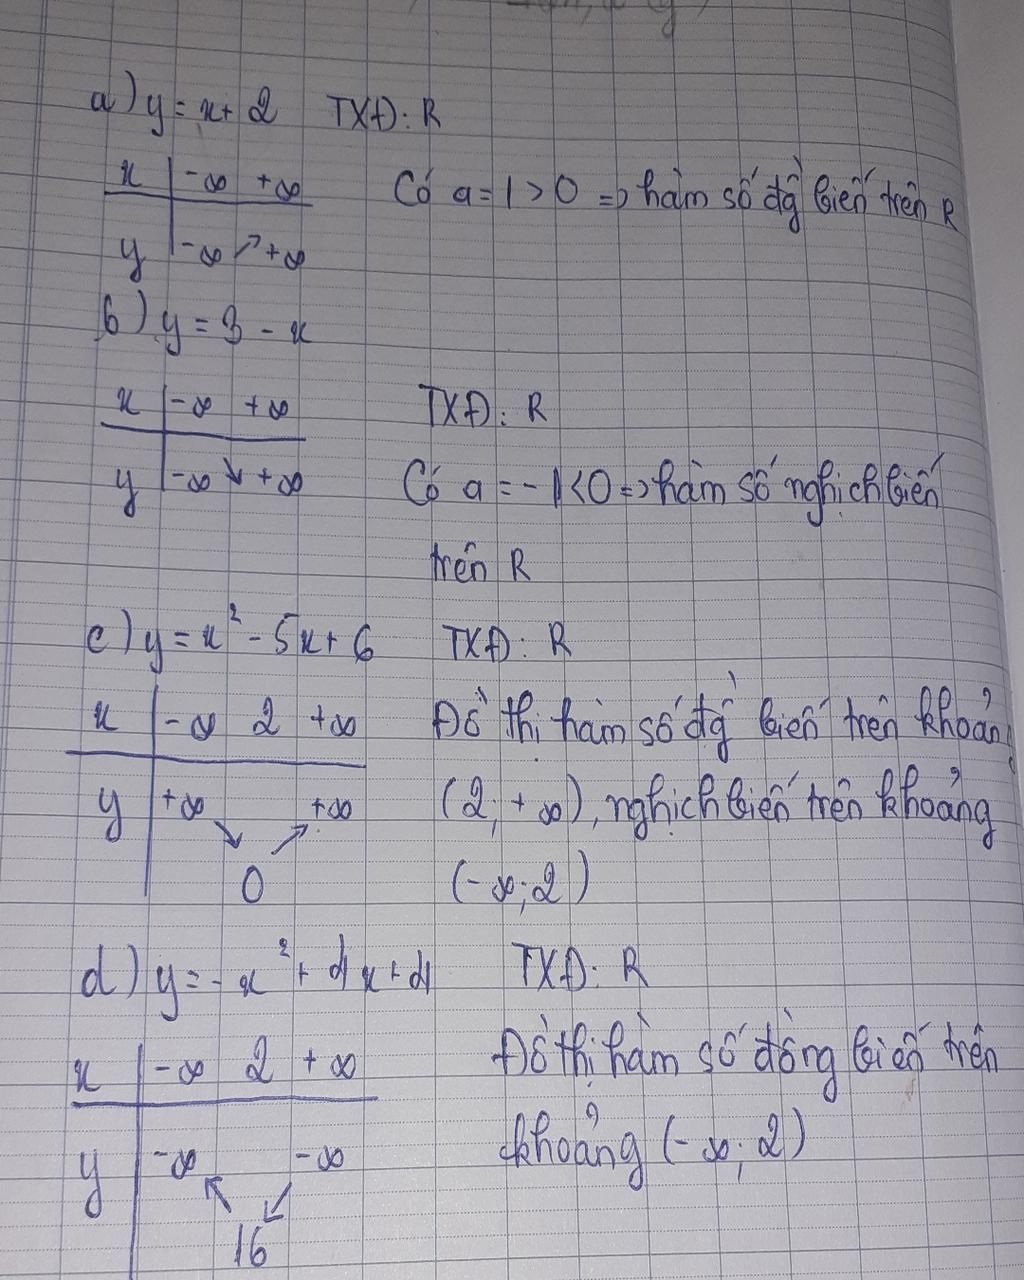 a) y = x + 2 TXĐ: R
x -∞ +∞ Có a = 1 > 0 => hàm số đg̀ biến trên R
y -∞ ↗ +∞
b) y = 3 - x
x -∞ +∞ TXĐ: R
y -∞ ↘ +∞ Có a = -1 < 0 => hàm số nghịch biến
trên R
c) y = x² - 5x + 6 TXĐ: R
x -∞ 2 +∞ Đồ thị hàm số đg̀ biến trên khoảng
y +∞ +∞ (2; +∞), nghịch biến trên khoảng
↘ ↗
0 (-∞; 2)
d) y = -x² + 4x + 4 TXĐ: R
x -∞ 2 +∞ Đồ thị hàm số đồng biến trên
y -∞ -∞ khoảng (-∞; 2)
↖ ↙
16